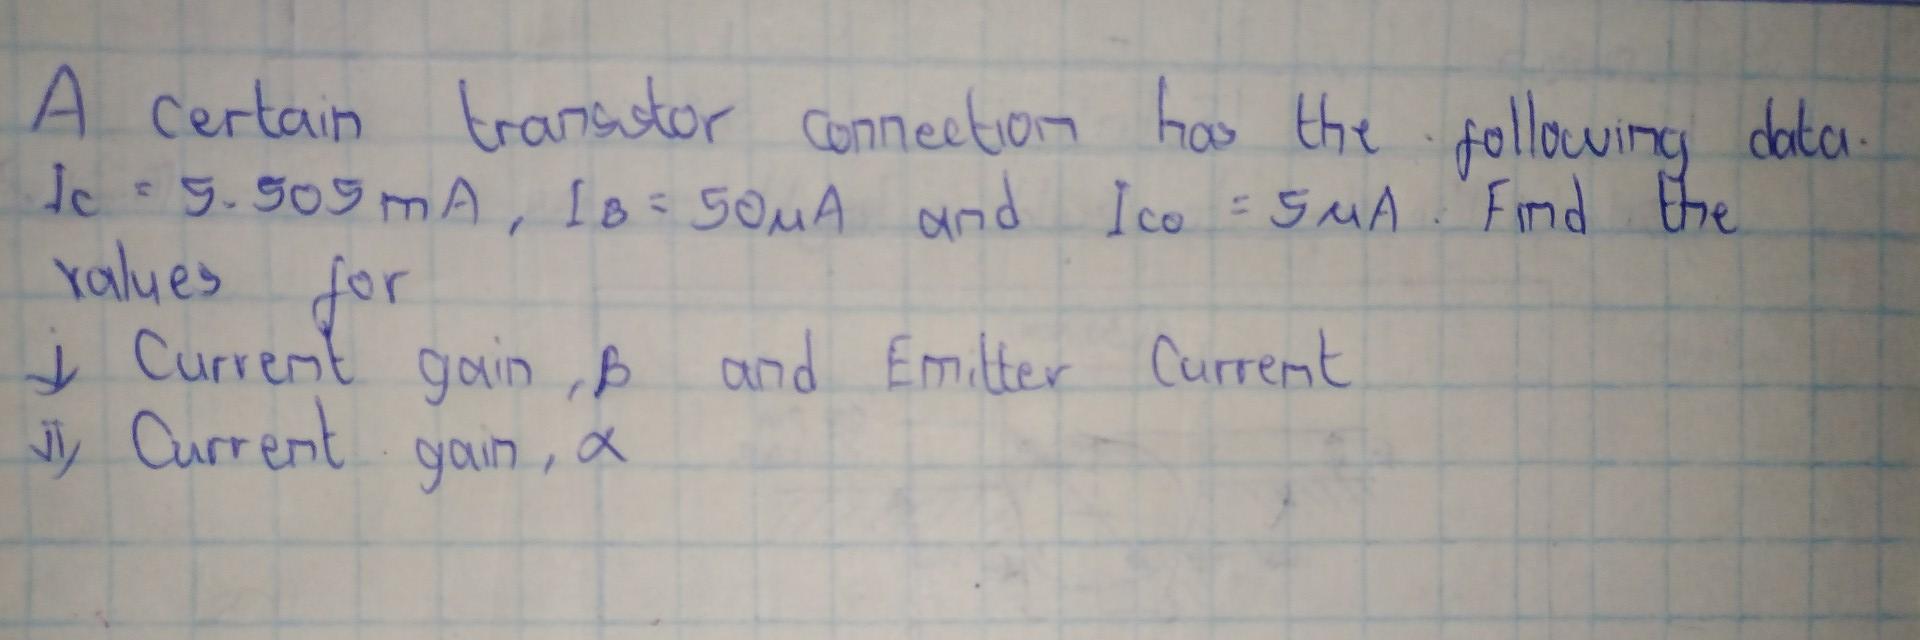 A certain transistor connection has the following data.
Ic = 5.505mA, IB = 50μA and Ico = 5μA. Find the
values for
i, Current gain, β and Emitter Current
ii, Current gain, α